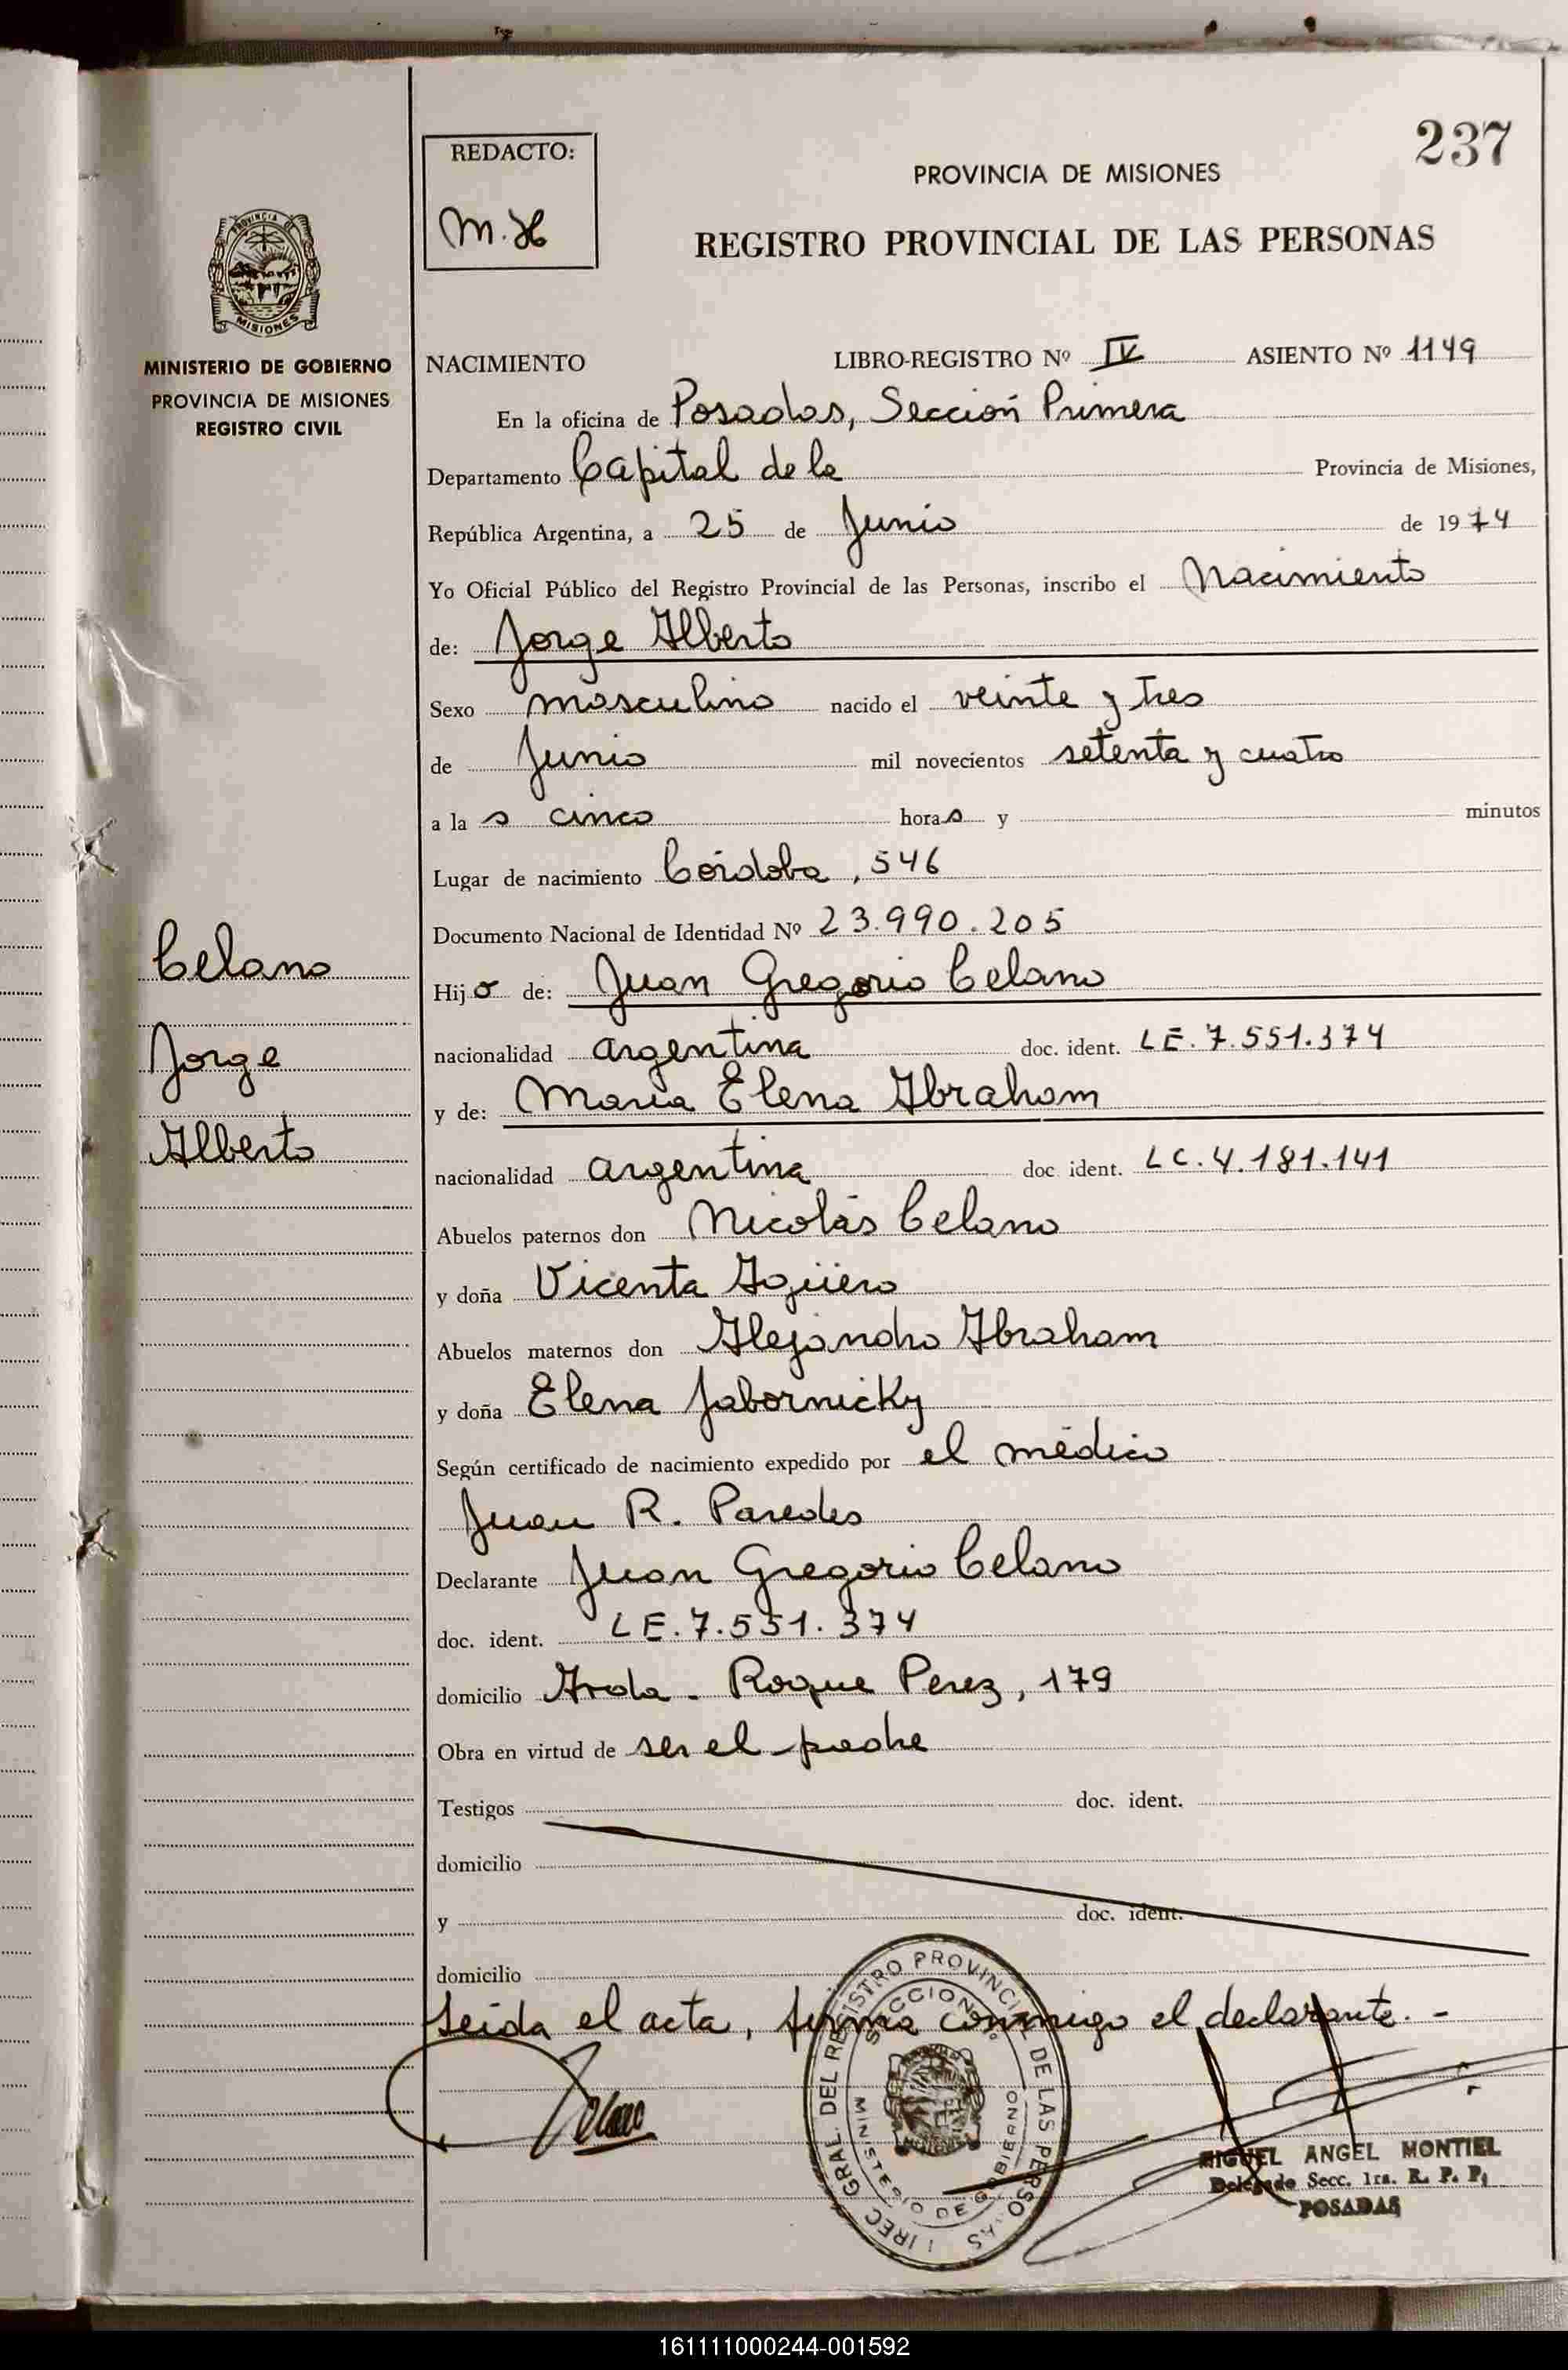 237
REDACTO:
M.H
PROVINCIA DE MISIONES
REGISTRO PROVINCIAL DE LAS PERSONAS
PROVINCIA
MISIONES
MINISTERIO DE GOBIERNO
PROVINCIA DE MISIONES
REGISTRO CIVIL
NACIMIENTO LIBRO-REGISTRO Nº IV ASIENTO Nº 1149
En la oficina de Posadas, Sección Primera
Departamento Capital de la Provincia de Misiones,
República Argentina, a 25 de Junio de 1974
Yo Oficial Público del Registro Provincial de las Personas, inscribo el Nacimiento
de: Jorge Alberto
Sexo masculino nacido el veinte y tres
de Junio mil novecientos setenta y cuatro
a la s cinco hora s y minutos
Lugar de nacimiento Córdoba, 546
Documento Nacional de Identidad Nº 23.990.205
Celano
Hij o de: Juan Gregorio Celano
Jorge
nacionalidad argentina doc. ident. LE. 7.551.374
y de: María Elena Abraham
Alberto
nacionalidad argentina doc. ident. LC. 4.181.141
Abuelos paternos don Nicolás Celano
y doña Vicenta Agüero
Abuelos maternos don Alejandro Abraham
y doña Elena Jabornicky
Según certificado de nacimiento expedido por el médico
Juan R. Paredes
Declarante Juan Gregorio Celano
doc. ident. LE. 7.551.374
domicilio Avda. Roque Perez, 179
Obra en virtud de ser el padre
Testigos doc. ident.
domicilio
y doc. ident.
domicilio
Leída el acta, firma conmigo el declarante. -
DIREC GRAL. DEL REGISTRO PROVINCIAL DE LAS PERSONAS
SECCION 1ª
MINISTERIO DE GOBIERNO
MIGUEL ANGEL MONTIEL
Delegado Secc. 1ra. R. P. P.
POSADAS
161111000244-001592